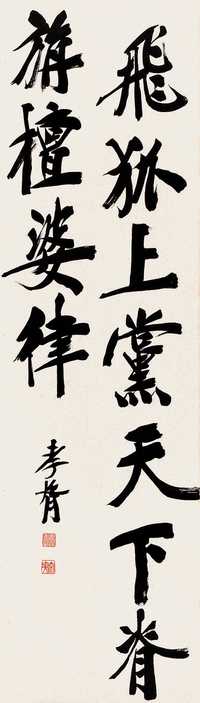 飛狐上黨天下脊
旃檀婆律
孝胥